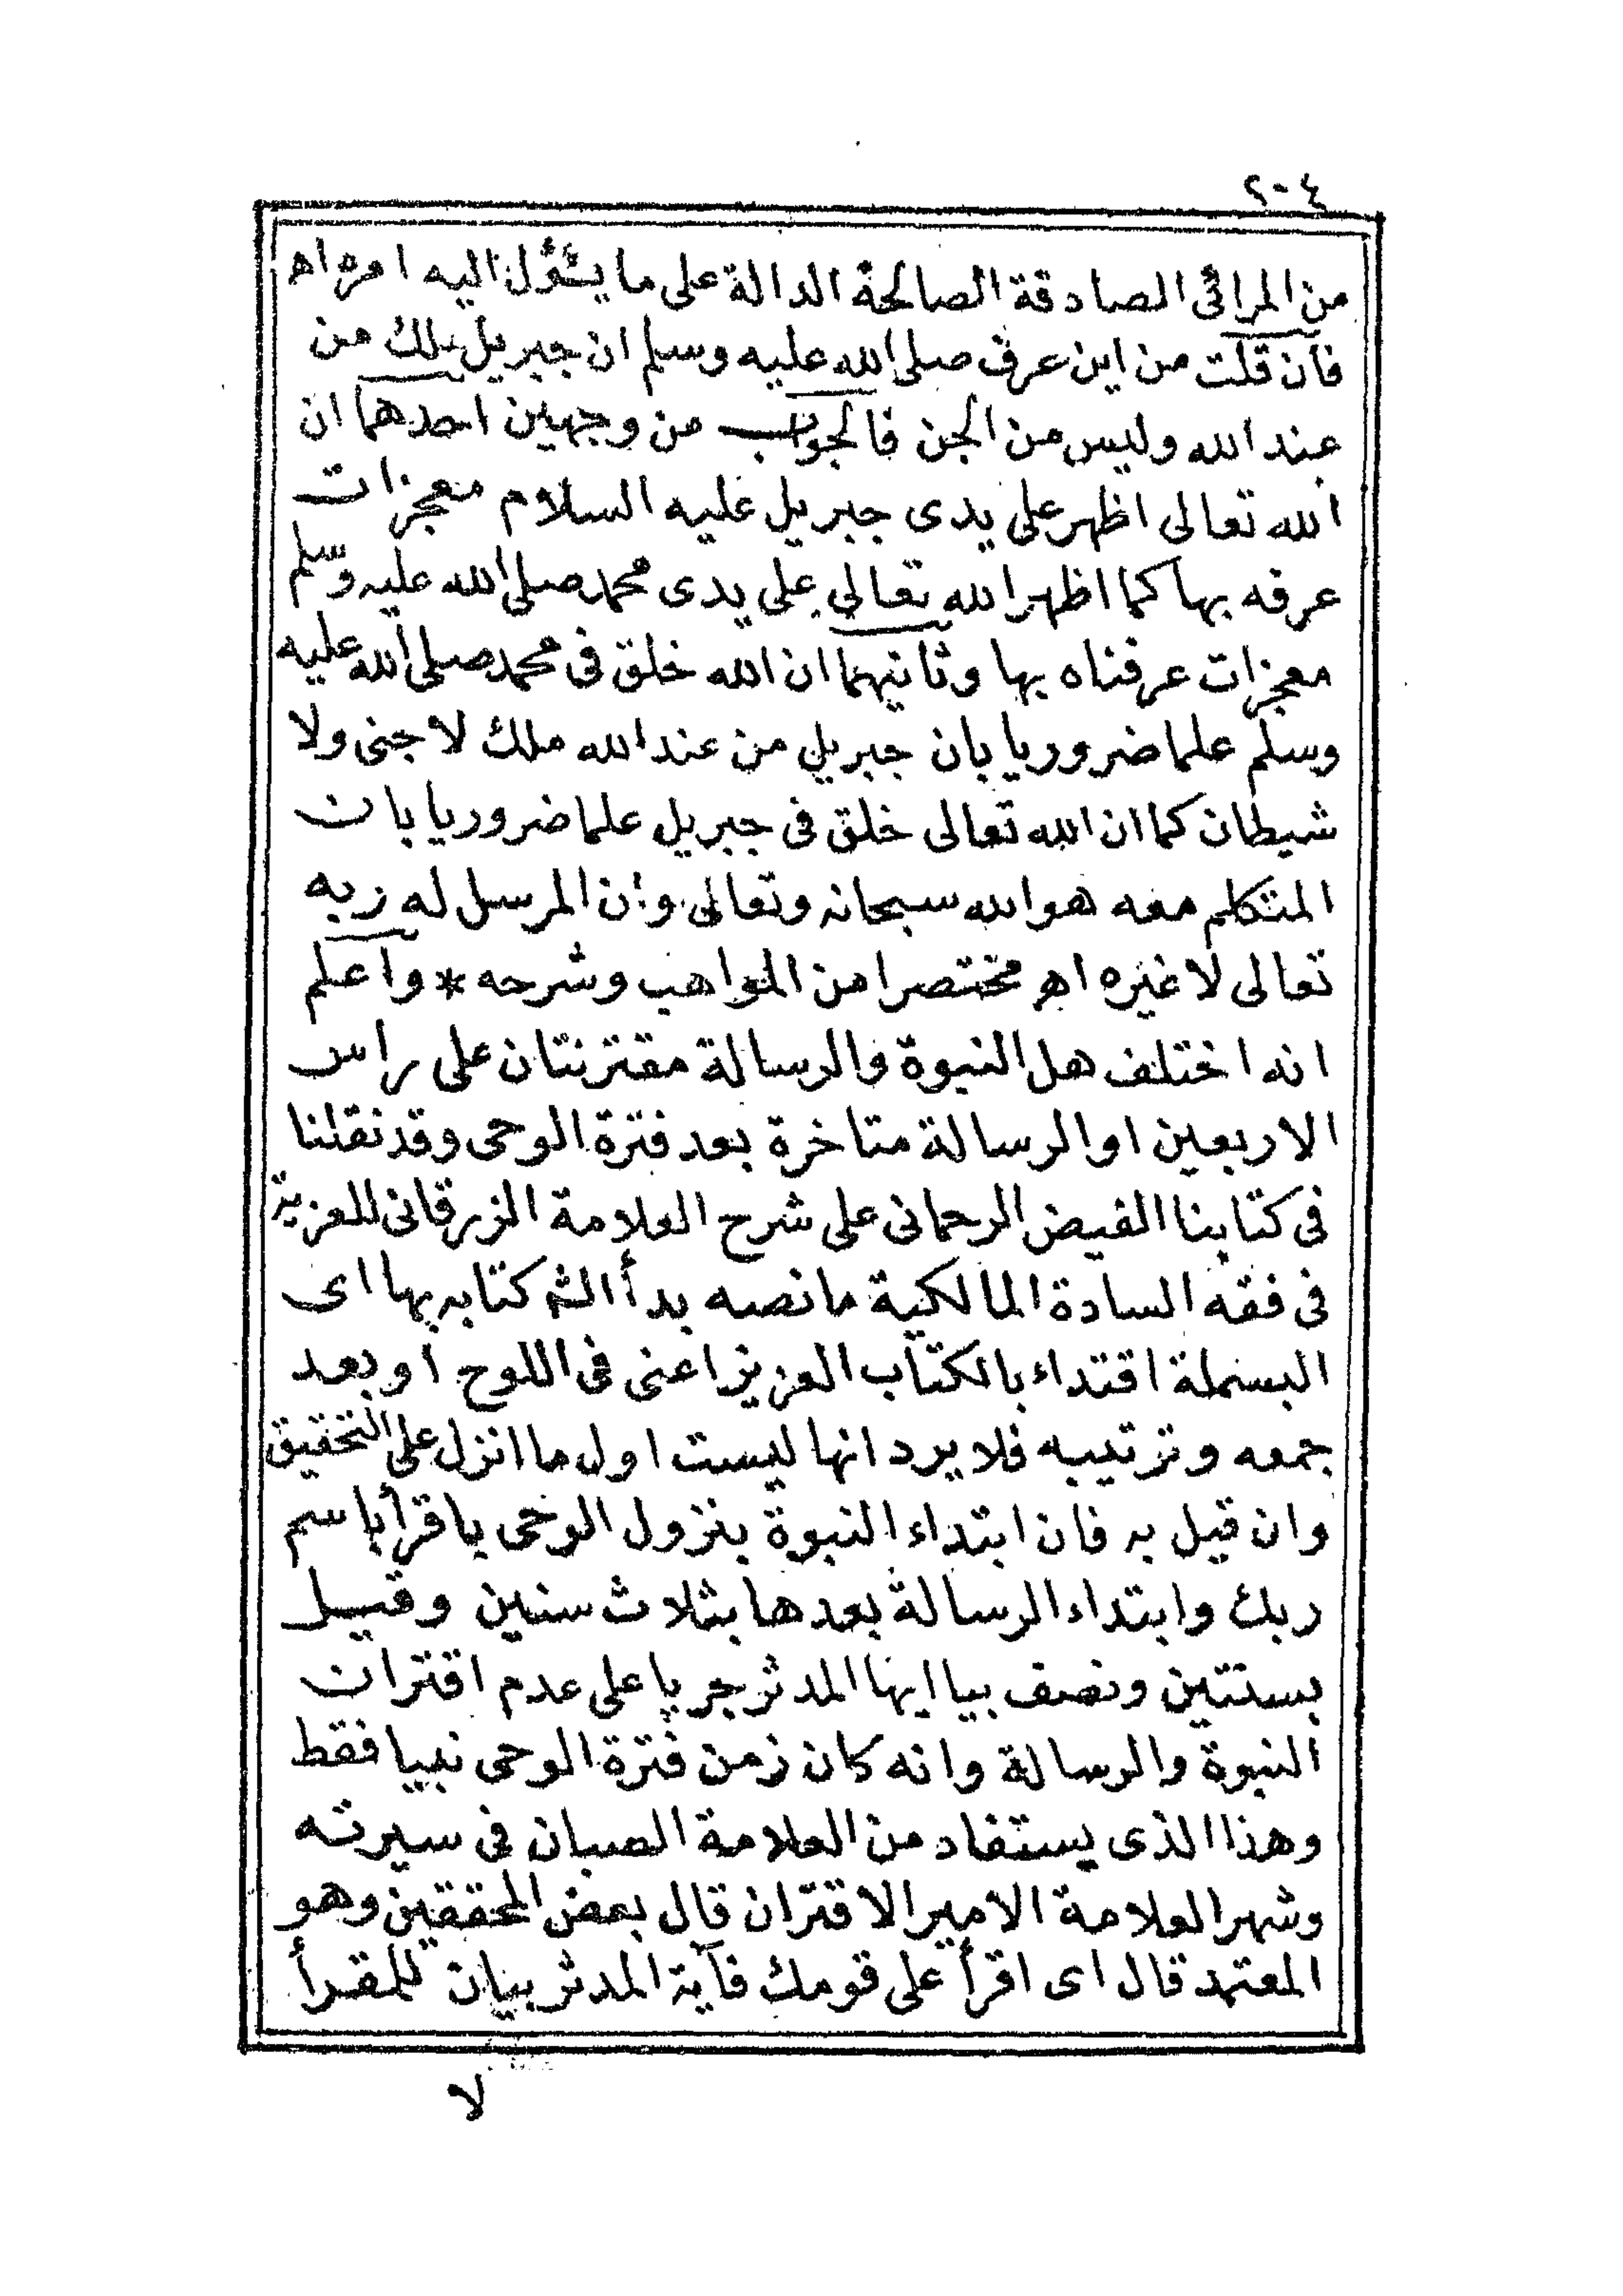 ٢٠٤
من المرائى الصادقة الصالحة الدالة على ما يئول اليه امره اه
فان قلت من اين عرف صلى الله عليه وسلم ان جبريل ملك من
عند الله وليس من الجن فالجواب من وجهين احدهما ان
الله تعالى اظهر على يدى جبريل عليه السلام معجزات
عرفه بها كما اظهر الله تعالى على يدى محمد صلى الله عليه وسلم
معجزات عرفناه بها وثانيهما ان الله خلق فى محمد صلى الله عليه
وسلم علما ضروريا بان جبريل من عند الله ملك لا جنى ولا
شيطان كما ان الله تعالى خلق فى جبريل علما ضروريا بان
المتكلم معه هو الله سبحانه وتعالى وان المرسل له ربه
تعالى لا غيره اه مختصرا من المواهب وشرحه * واعلم
انه اختلف هل النبوة والرسالة مقترنتان على راس
الاربعين او الرسالة متاخرة بعد فترة الوحى وقد نقلنا
فى كتابنا الفيض الرحمانى على شرح العلامة الزرقانى للعزية
فى فقه السادة المالكية ما نصه بدأ الشم كتابه بها اى
البسملة اقتداء بالكتاب العزيز اعنى فى اللوح او بعد
جمعه وترتيبه فلا يرد انها ليست اول ما انزل على التحقيق
وان قيل به فان ابتداء النبوة بنزول الوحى باقرأ باسم
ربك وابتداء الرسالة بعدها بثلاث سنين وقيل
بسنتين ونصف بيا ايها المدثر جريا على عدم اقتران
النبوة والرسالة وانه كان زمن فترة الوحى نبيا فقط
وهذا الذى يستفاد من العلامة الصبان فى سيرته
وشهر العلامة الامير الاقتران قال بعض المحققين وهو
المعتمد قال اى اقرأ على قومك فآية المدثر بيان للمقرأ
لا